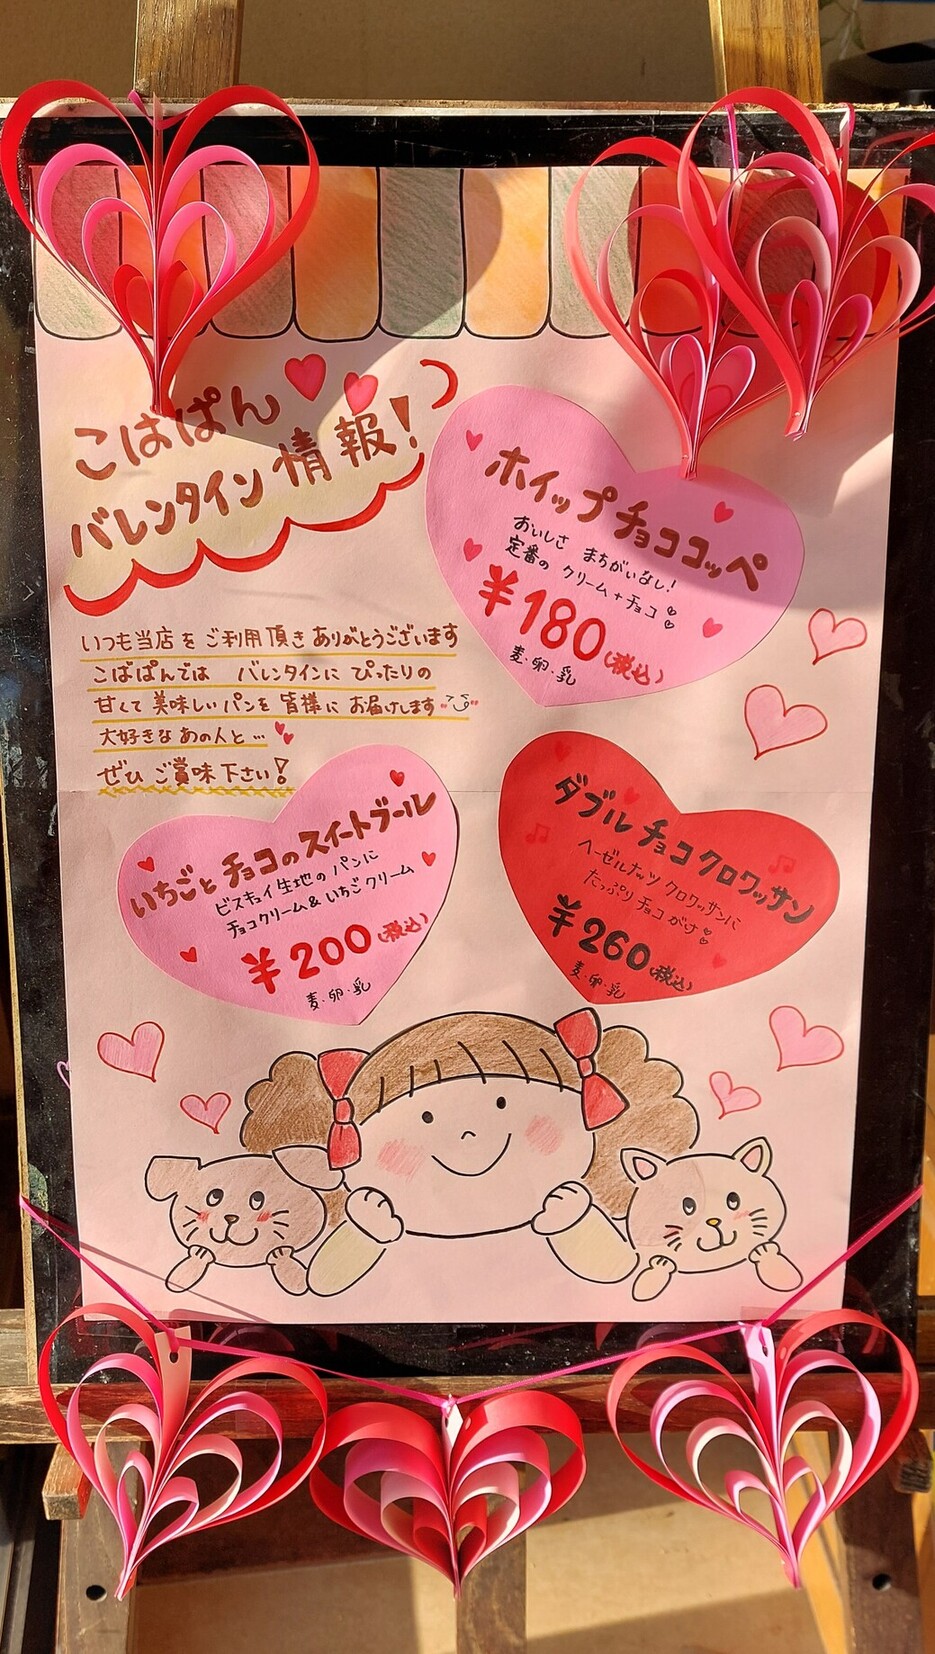 こばぱん
バレンタイン情報!
いつも当店をご利用頂きありがとうございます
こばぱんでは バレンタインに ぴったりの
甘くて美味しいパンを皆様にお届けします
大好きなあの人と…
ぜひ ご賞味下さい!
ホイップチョココッペ
おいしさ まちがいなし!
定番の クリーム+チョコ
¥180(税込)
麦・卵・乳
いちごとチョコのスイートブール
ビスキュイ生地のパンに
チョコクリーム&いちごクリーム
¥200(税込)
麦・卵・乳
ダブルチョコクロワッサン
ヘーゼルナッツクロワッサンに
たっぷりチョコがけ
¥260(税込)
麦・卵・乳